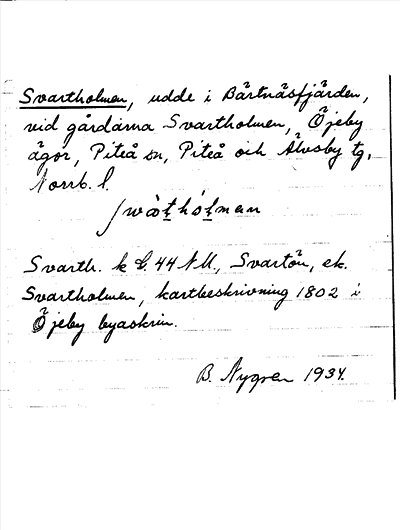 Svartholmen, udde i Bärtnäsfjärden,
vid gårdarna Svartholmen, Öjeby
ägor, Piteå sn, Piteå och Älvsby tg,
Norrb. l.
Svarth. k G. 44 NU., Svartön, ek.
Svartholmen, kartbeskrivning 1802 i
Öjeby byaskrin.
B. Nygren 1934.